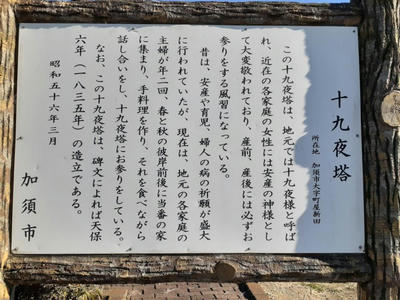 十九夜塔
所在地 加須市大字町屋新田
この十九夜塔は、地元では十九夜様と呼ば
れ、近在の各家庭の女性には安産の神様とし
て大変敬われており、産前、産後には必ずお
参りをする風習になっている。
昔は、安産や育児、婦人の病の祈願が盛大
に行われていたが、現在は、地元の各家庭の
主婦が年二回、春と秋の彼岸前後に当番の家
に集まり、手料理を作り、それを食べながら
話し合いをし、十九夜塔にお参りをしている。
なお、この十九夜塔は、碑文によれば天保
六年(一八三五年)の造立である。
昭和五十六年三月
加須市